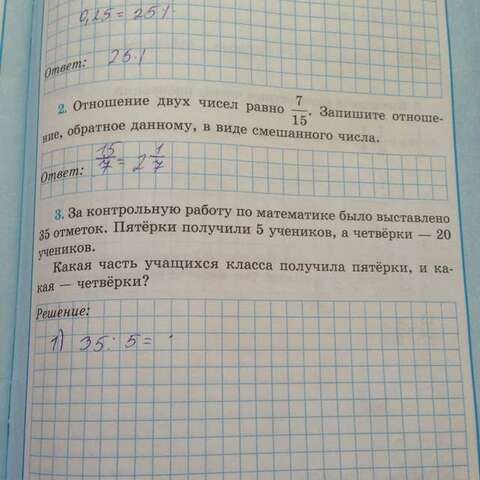 0,25 = 25%
Ответ: 25%
2. Отношение двух чисел равно 7/15. Запишите отноше-
ние, обратное данному, в виде смешанного числа.
Ответ: 15/7 = 2 1/7
3. За контрольную работу по математике было выставлено
35 отметок. Пятёрки получили 5 учеников, а четвёрки — 20
учеников.
Какая часть учащихся класса получила пятёрки, и ка-
кая — четвёрки?
Решение:
1) 35 : 5 =